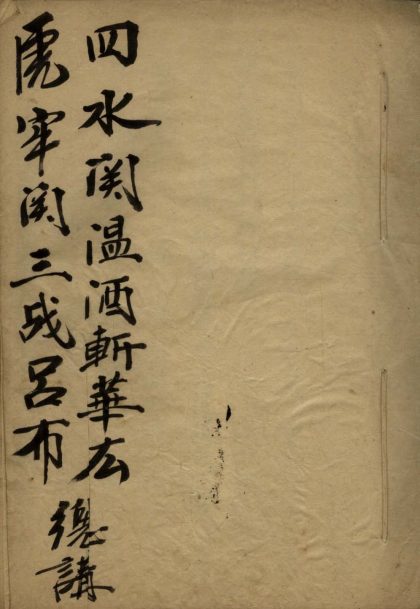 四水関温酒斬華厷
虎牢関三战呂布
總講